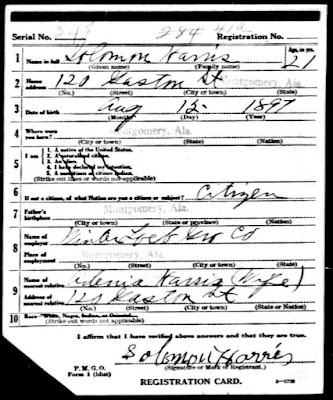 Serial No. 249 284 Registration No.
1 Name in full Solomon Harris Age, in yrs. 21
(Given name) (Family name)
2 Home address 120 Gaston St Montgomery, Ala.
(No.) (Street) (City or town) (State)
3 Date of birth Aug 15 1897
(Month) (Day) (Year)
4 Where were you born? Montgomery, Ala.
(City or town) (State) (Nation)
5 I am
1. A native of the United States.
2. A naturalized citizen.
3. An alien.
4. I have declared my intention.
5. A noncitizen or citizen Indian.
(Strike out lines or words not applicable)
6 If not a citizen, of what Nation are you a citizen or subject? Citizen
7 Father's birthplace Montgomery, Ala.
(City or town) (State or province) (Nation)
8 Name of employer Loeb Gro Co
Place of employment Montgomery, Ala.
(No.) (Street) (City or town) (State)
9 Name of nearest relative Harris (Wife)
Address of nearest relative 120 Gaston St
(No.) (Street) (City or town) (State or Nation)
10 Race—White, Negro, Indian, or Oriental
(Strike out words not applicable)
I affirm that I have verified above answers and that they are true.
Solomon Harris
P. M. G. O.
Form 1 (blue)
(Signature or Mark of Registrant.)
REGISTRATION CARD.